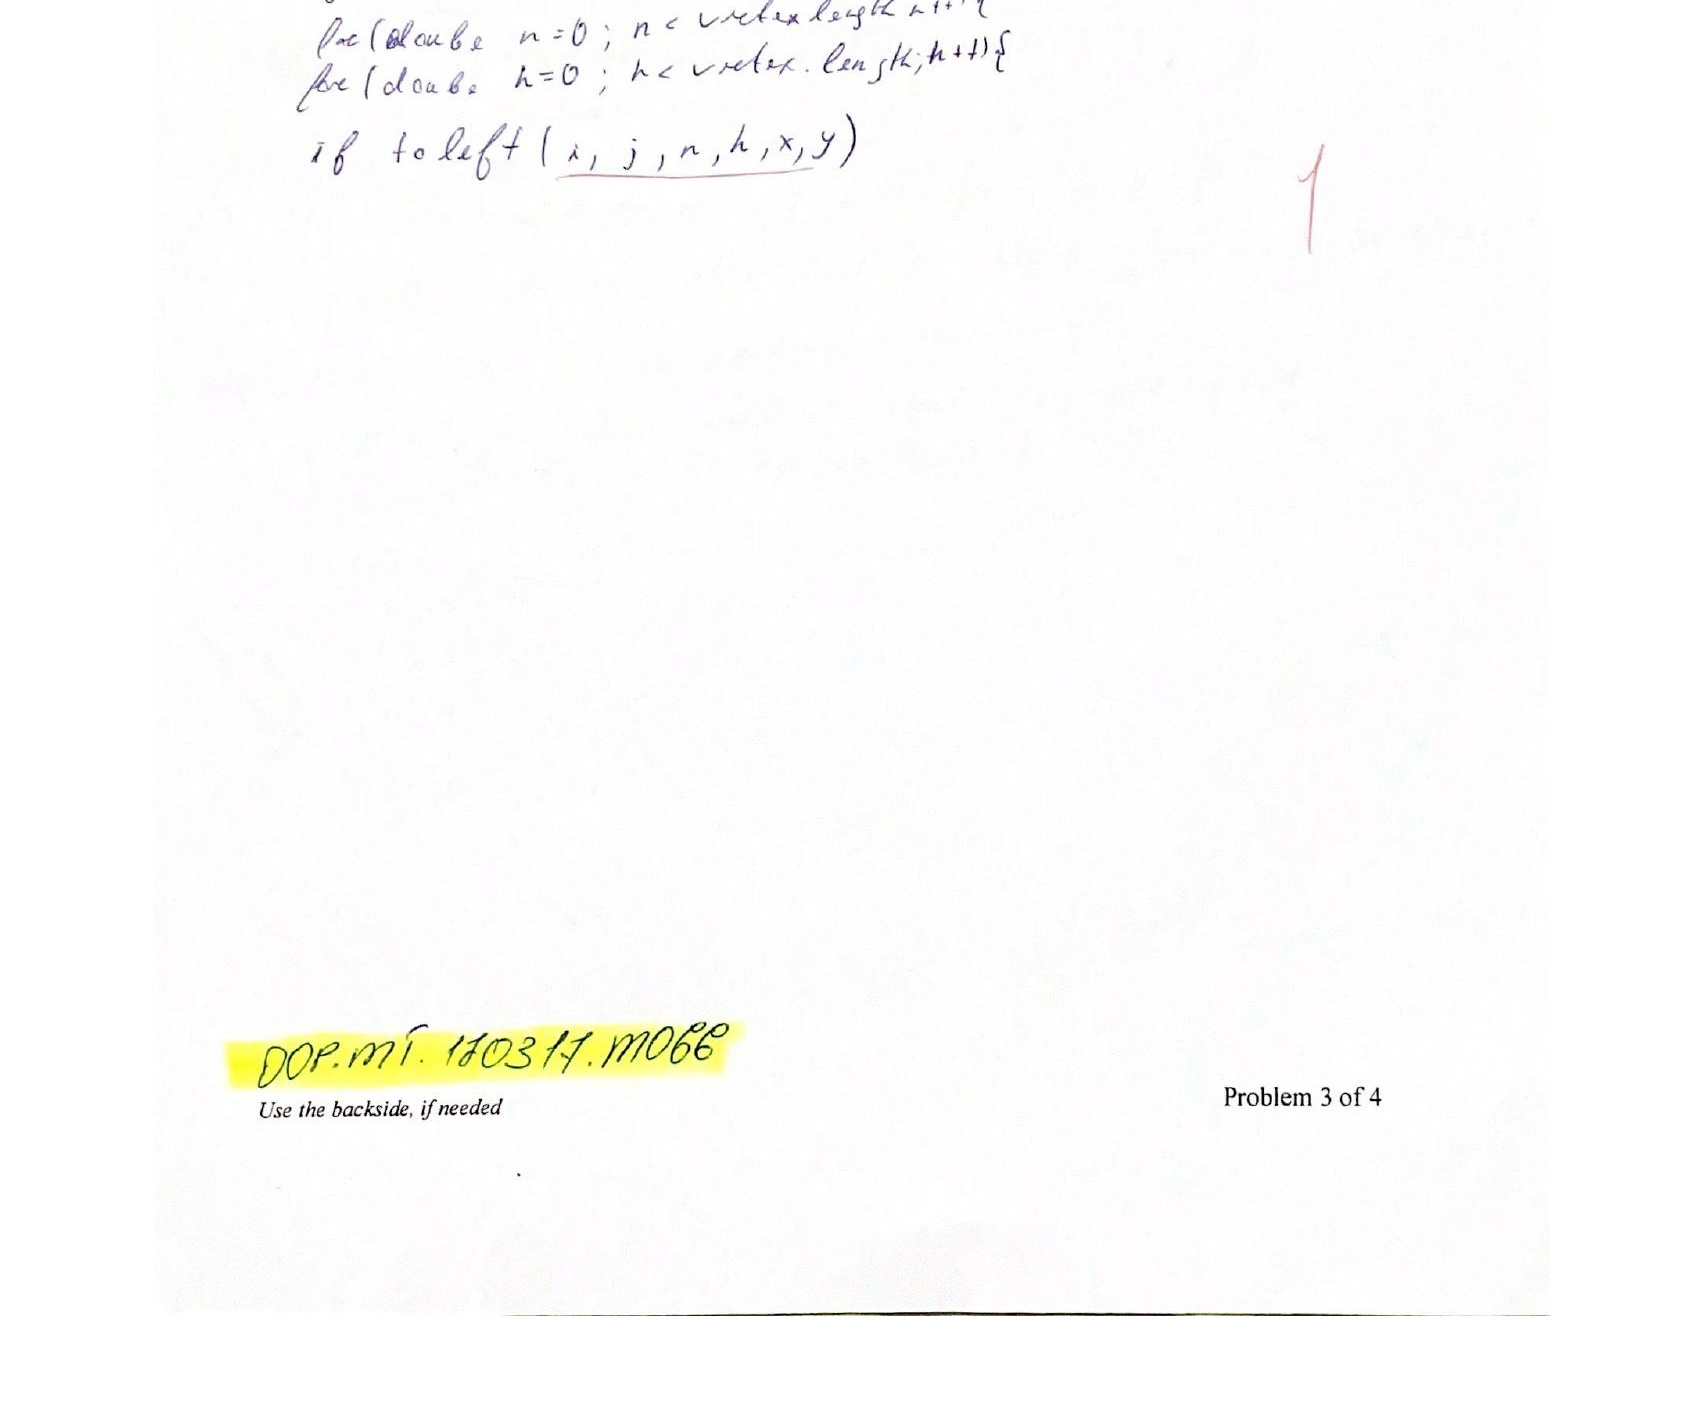 for(double n=0; n< vretex length n++){
for(double h=0; h< vretex. length; h++){
if toleft(i, j, n, h, x, y)
1
DOP.MT. 170317.MO66
Use the backside, if needed
Problem 3 of 4